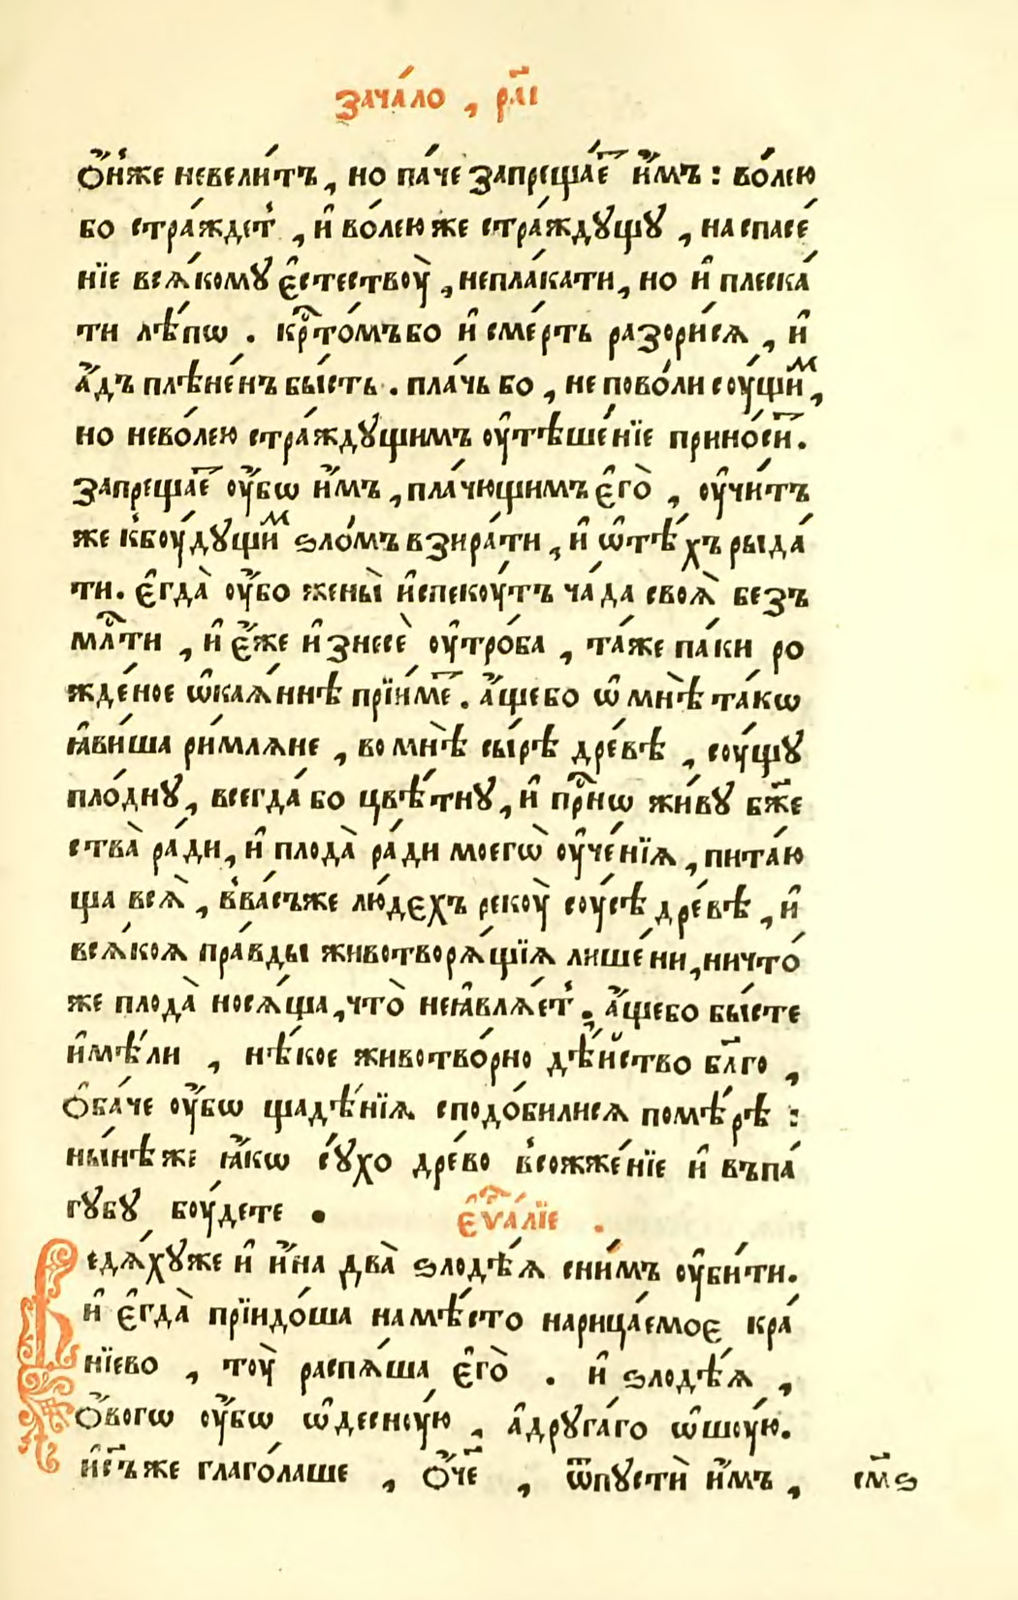 зача́ло , рл҃і
Ѻ҆́нже невели́тъ , но па́че запреща́е҅т и҆̀мъ : во́лею
бо стра́ждет̾ , и҆ во́лею же стра́ждꙋщꙋ , на спасе́
нїе вся́комꙋ є҆стествоу̀ , непла́кати , но и҆ плеска́
ти лѣ́пѡ . кр҇то́мъбо и҆ сме́рть разори́ся , и҆
а҆́дъ плѣне́нъ бы́сть . пла́чь бо , не по во́ли соу́щиⷨ ,
но нево́лею стра́ждꙋщимъ оу҆тѣше́нїе прино́сиⷮ .
Запреща́еⷮ оу҆́бѡ и҆̀мъ , пла́чющимъ є҆го̀ , оу҆чи́тъ
же к̾боу́дꙋщиⷨ ѕло́мъ взира́ти , и҆ ѡ҆тѣ́хъ рыда́
ти . є҆гда̀ оу҆́бо жены̀ и҆спекоу́тъ ча́да своя̀ безъ
мл҇ти , и҆ є҆́же и҆знесѐ оу҆тро́ба , та́же па́ки ро
жде́ное ѡ҆кая́ннѣ прїи́меⷮ . а҆́щебо ѡ҆ мнѣ̀ та́кѡ
ꙗ҆ви́ша ри́мляне , во мнѣ̀ сы́рѣ дре́вѣ , соу́щꙋ
пло́днꙋ , всегда́ бо цвѣ́тнꙋ , и҆ пр҇нѡ жи́вꙋ бж҃е
ства̀ ра́ди , и҆ плода̀ ра́ди моегѡ̀ оу҆че́нїя , пита́ю
ща вся̀ , в̾ва́съже лю́дєхъ рекоу̀ соу́сѣ дре́вѣ , и҆
вся́коя пра́вды животворя́щїя лише́ни , ничто́
же плода̀ нося́ща , что̀ неꙗ҆вля́ет̾ . а҆́щебо бы́сте
и҆мѣ́ли , нѣ́кое животво́рно дѣ́йство бл҃го ,
Ѻ҆ба́че оу҆́бѡ щадѣ́нїя сподо́билися помѣ́рѣ :
ны́нѣ же ꙗ҆́кѡ сꙋ́хо дре́во в̾сожже́нїе и҆ въ па́
гꙋбꙋ боу́дете . є҆ѵⷢ҇а́лїе .
Ведя́хꙋже и҆ и҆́на два̀ ѕлодѣ́я сни́мъ оу҆би́ти .
и҆ є҆гда̀ прїидо́ша на мѣ́сто нарица́емоє кра́
нїево , тоу̀ распя́ша є҆го̀ . и҆ ѕлодѣ́я ,
Ѻ҆́вогѡ оу҆́бѡ ѡ҆десноу́ю , а҆ дрꙋга́го ѡ҆шоу́ю .
и҆с҃ъ же глаго́лаше , ѻ҆́ч҃е , ѿпꙋстѝ и҆́мъ , см҃ѕ